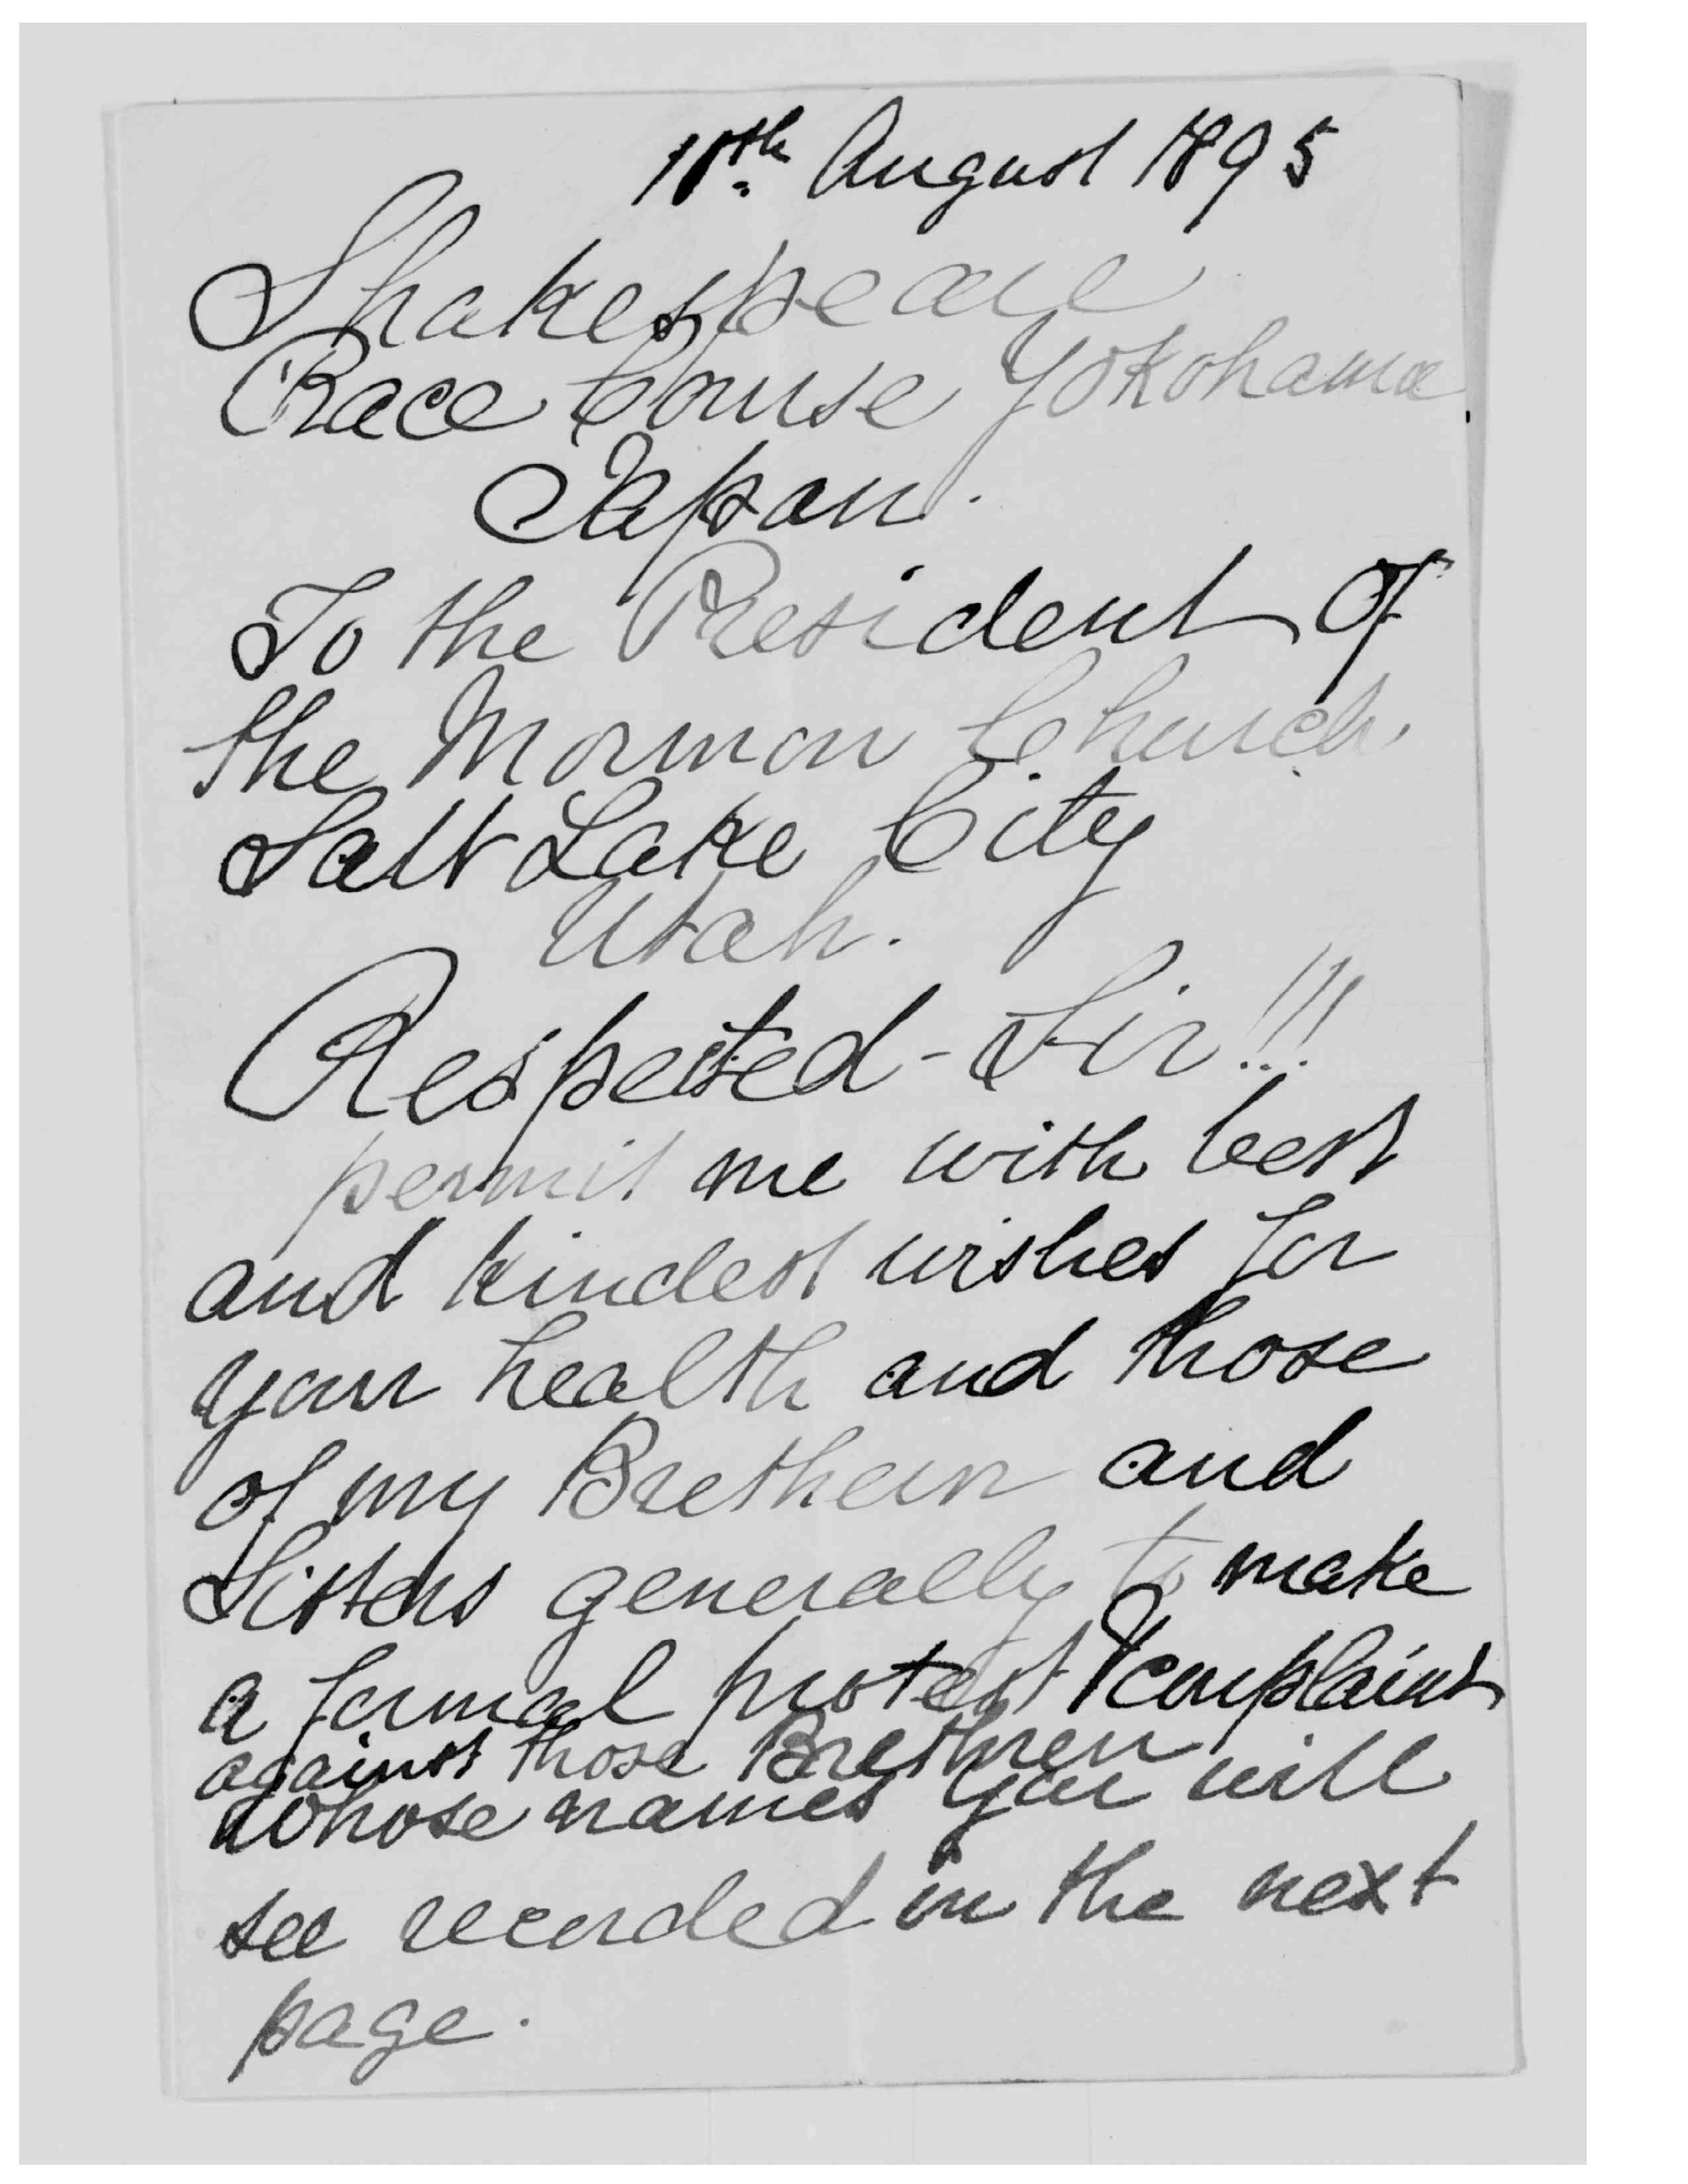 10th August 1895
Shakespeare
Race Course Yokohama.
Japan.
To the President of
the Mormon Church
Salt Lake City
Utah.
Respected - Sir!!!
permit me with best
and kindest wishes for
your health and those
of my Brethern and
Sisters generally to make
a formal protest & complaint
against those Brethren
whose names you will
see recorded in the next
page.